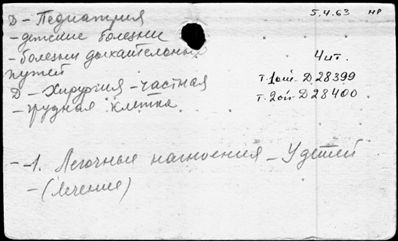 D - Педиатрия
5.4.63 нр
- детские болезни
- болезни дыхательных
путей
4 шт.
т. 1ой D 28399
D - Хирургия - частная
т. 2ой D 28400
- грудная клетка
- - 1. Легочные нагноения - У детей
- (лечение)